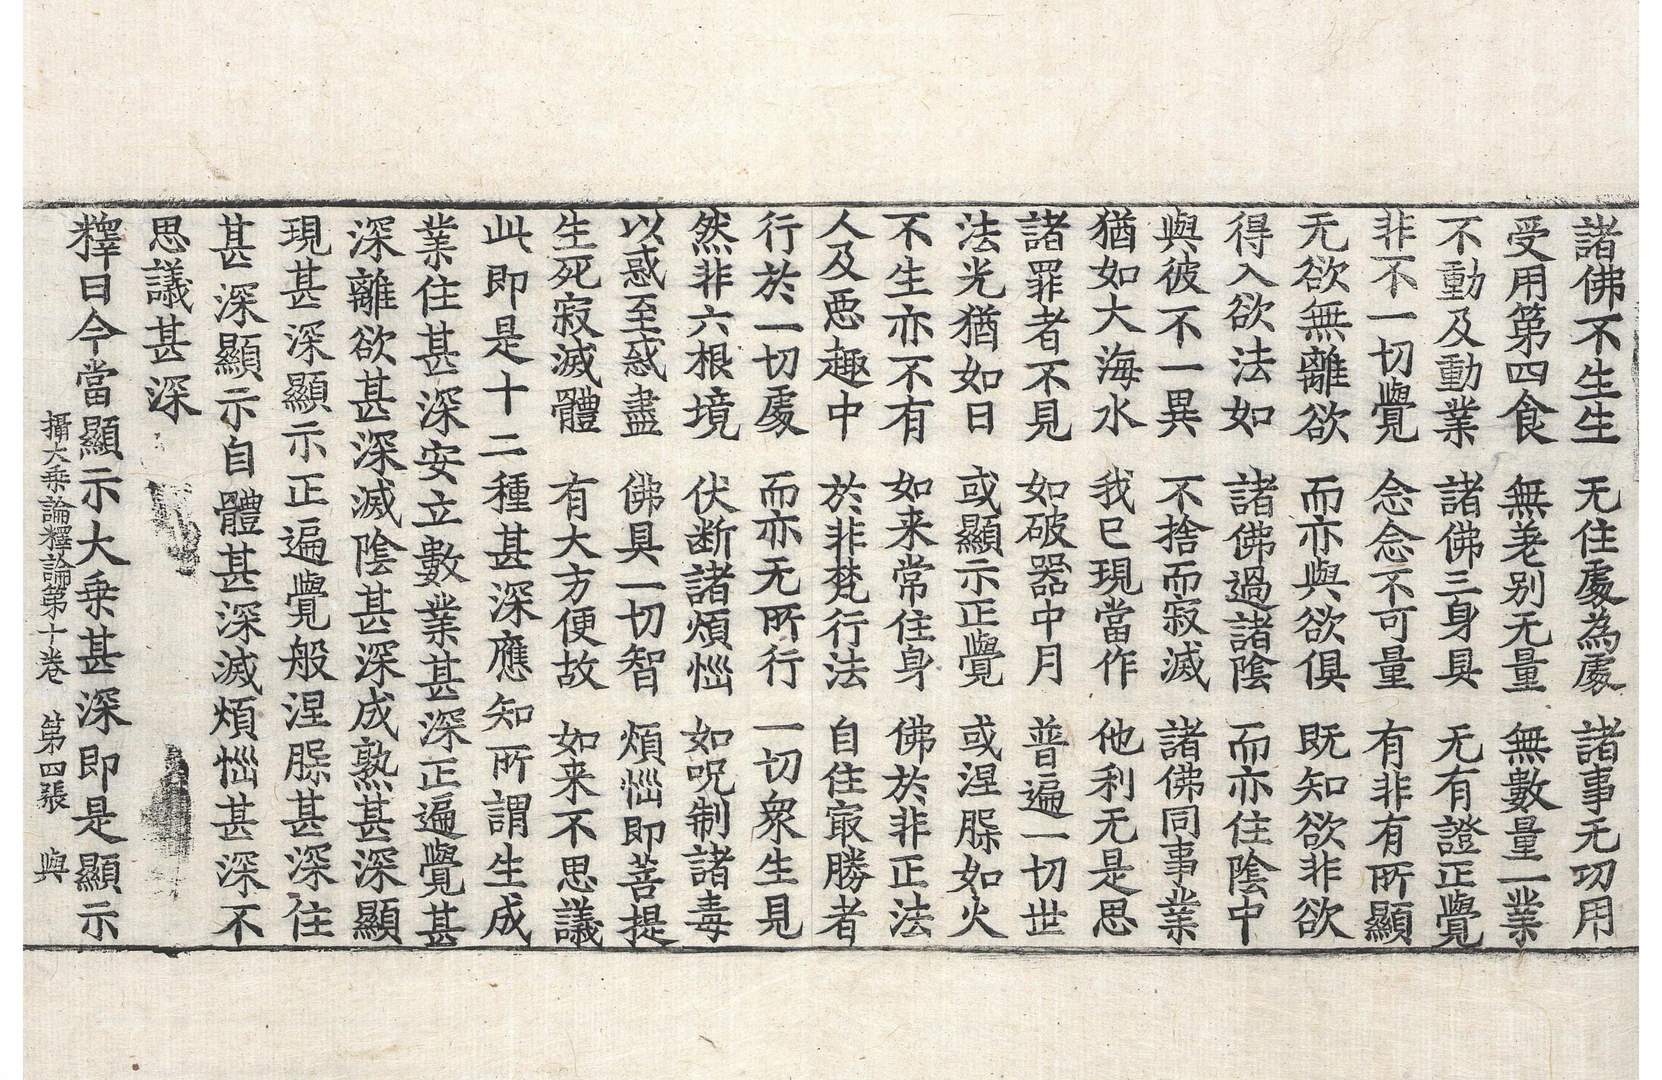 諸佛不生生　无住處為處　諸事无功用
受用第四食　無差别无量　無數量一業
不動及動業　諸佛三身具　无有證正覺
非不一切覺　念念不可量　有非有所顯
无欲無離欲　而亦與欲俱　既知欲非欲
得入欲法如　諸佛過諸陰　而亦住陰中
與彼不一異　不捨而寂滅　諸佛同事業
猶如大海水　我已現當作　他利无是思
諸罪者不見　如破器中月　普遍一切世
法光猶如日　或顯示正覺　或涅槃如火
不生亦不有　如来常住身　佛於非正法
人及惡趣中　於非梵行法　自住㝡勝者
行於一切處　而亦无所行　一切衆生見
然非六根境　伏断諸煩惱　如呪制諸毒
以惑至惑盡　佛具一切智　煩惱即菩提
生死寂滅體　有大方便故　如来不思議
此即是十二種甚深應知所謂生成
業住甚深安立數業甚深正遍覺甚
深離欲甚深滅陰甚深成熟甚深顯
現甚深顯示正遍覺般涅槃甚深住
甚深顯示自體甚深滅煩惱甚深不
思議甚深
釋曰今當顯示大乘甚深即是顯示
攝大乘論釋論第十卷　第四張　與